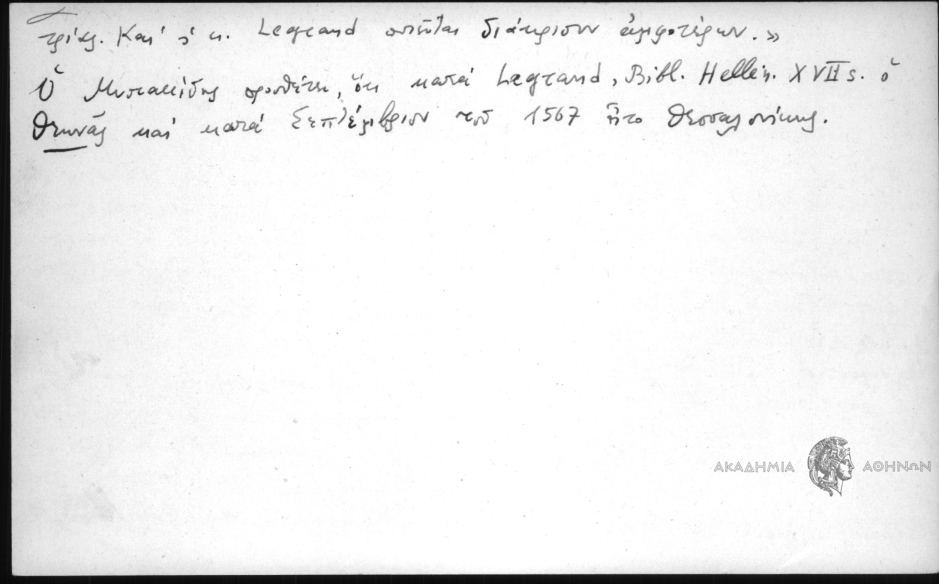 τρίας. Καὶ ὁ κ. Legrand ποιεῖται διάκρισιν ἀμφοτέρων.»
Ὁ Μυστακίδης προσθέτει, ὅτι κατὰ Legrand, Bibl. Hellén. XVII s. ὁ
Θεωνᾶς καὶ κατὰ Σεπτέμβριον τοῦ 1567 ἦτο Θεσσαλονίκης.
ΑΚΑΔΗΜΙΑ ΑΘΗΝΩΝ